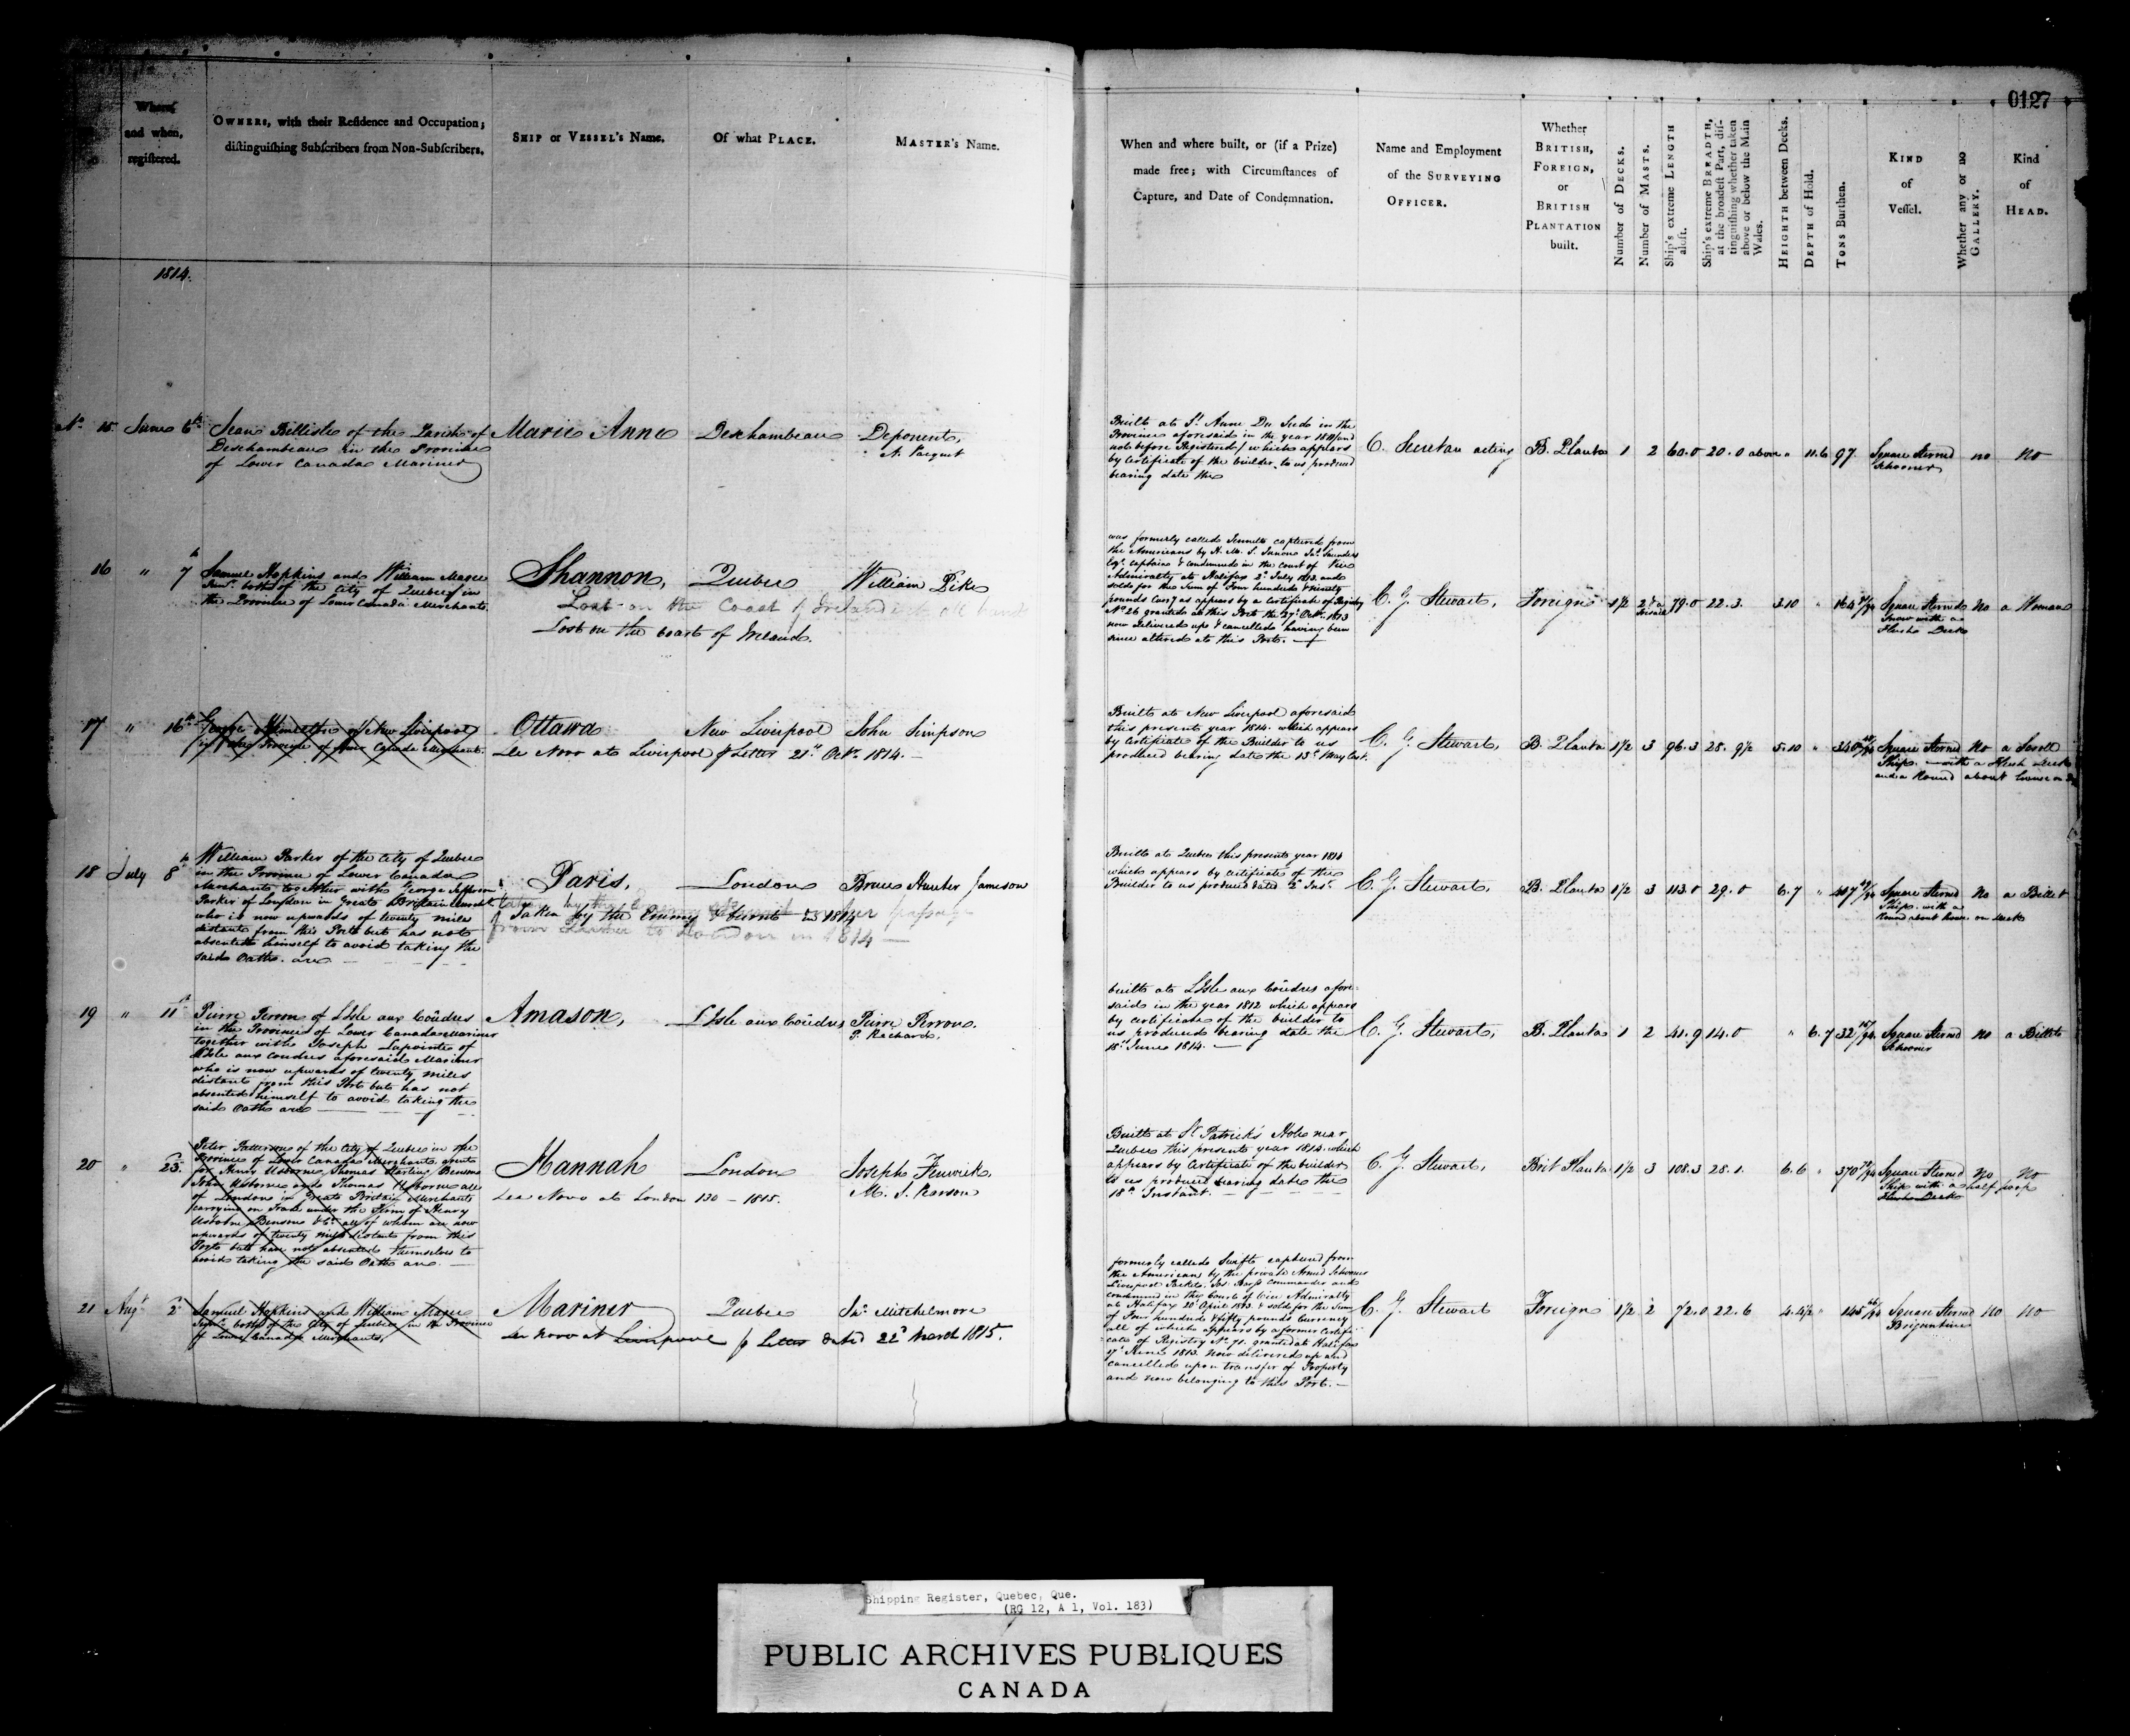 0127
Where
and when,
registered.
OWNERS, with their Residence and Occupation;
distinguishing Subscribers from Non-Subscribers.
SHIP or VESSEL's Name.
Of what PLACE.
MASTER's Name.
When and where built, or (if a Prize)
made free; with Circumstances of
Capture, and Date of Condemnation.
Name and Employment
of the SURVEYING
OFFICER.
Whether
BRITISH,
FOREIGN,
or
BRITISH
PLANTATION
built.
Number of DECKS.
Number of MASTS.
Ship's extreme LENGTH
aloft.
Ship's extreme BREADTH,
at the broadest Part, dis-
tinguishing whether taken
above or below the Main
Wales.
HEIGHTH between Decks.
DEPTH of Hold.
TONS Burthen.
KIND
of
Vessel.
Whether any or no
GALLERY.
Kind
of
HEAD.
1814.
No. 15 June 6th
Jean Bellisle of the Parish of
Deschambeau in the Province
of Lower Canada Mariner
Marie Anne
Deschambeau
Deponent,
N. Paquet
Built at St. Anne Du Sud in the
Province aforesaid in the year 1811 and
not before Registered / which appears
by Certificate of the builder to us produced
bearing date the
acting
B. Planta 1 2 60.0 20.0 above " 11.6 97
Square Sterned
Schooner
no no
16 " 7th
Samuel Hopkins and William Magee
Junr. both of the City of Quebec in
the Province of Lower Canada Merchants
Shannon, Quebec William Pike
Lost on the Coast of Ireland
Lost on the Coast of Ireland.
was formerly called captured from
the Americans by H. M. S. Junon Jas. Saunders
Esqr. Captain & condemned in the Court of Vice
Admiralty at Halifax 2d. July 1813 and
sold for the Sum of Four hundred & Ninety
pounds Curr'y as appears by a Certificate of Registry
No. 26 granted at this Port the 27th Octr. 1813
now delivered up & cancelled having been
since altered at this Port.
C. G. Stewart, Foreign 1 1/2 79.0 22.3. 3.10 " 164
Square Sterned
Snow with a
Flush Deck
No a Woman
17 " 16th
George Hamilton of New Liverpool
in the Province of Lower Canada Merchant.
Ottawa New Liverpool John Simpson
De Novo at Liverpool p Letter 21st Octr. 1814.
Built at New Liverpool aforesaid
this present year 1814. which appears
by Certificate of the Builder to us
produced bearing date the 13th May last.
C. G. Stewart, B. Planta 1 1/2 3 96.3 28. 9 1/2 5.10 " 340
Square Sterned No a Scroll
Ship. with a Flush Deck
and a Round about house on
18 July 8th
William Parker of the City of Quebec
in the Province of Lower Canada
Merchant, together with George Jefferson
Parker of London in Great Britain Merchant
who is now upwards of twenty miles
distant from this Port but has not
absented himself to avoid taking the
said Oath. are
Paris, London Bruce Hunter Jameson
Taken by the Enemy & burnt in 1814
from Quebec to London in 1814
Built at Quebec this present year 1814
which appears by Certificate of the
Builder to us produced dated 2d Inst.
C. G. Stewart, B. Planta 1 1/2 3 113.0 29.0 6.7 " 407
Square Sterned No a Billet
Ship. with a
Round about house on deck
19 " 11th
Pierre Perron of L'Isle aux Coûdres
in the Province of Lower Canada mariner
together with Joseph Lapointe of
L'Isle aux coudres aforesaid Mariner
who is now upwards of twenty miles
distant from this Port but has not
absented himself to avoid taking the
said Oath are
Amason, L'Isle aux Coûdres Pierre Perron.
P. Richard,
built at L'Isle aux Coûdres afore-
said in the year 1812 which appears
by certificate of the builder to
us produced bearing date the
18th June 1814.
C. G. Stewart, B. Planta 1 2 41.9 14.0 " 6.7 32
Square Sterned No a Billet
Schooner
20 " 23d.
Peter Patterson of the City of Quebec in the
Province of Lower Canada Merchant, agent
for Henry Usborne, Thomas Starling Benson
John Usborne and Thomas Usborne all
of London in Great Britain Merchants
carrying on Trade under the Firm of Henry
Usborne Benson & Co. all of whom are now
upwards of twenty miles distant from this
Port but have not absented themselves to
avoid taking the said Oath are.
Hannah London Joseph Fenwick,
M. S. Pearson
De Novo at London 130 - 1815.
Built at St. Patrick's Hole near
Quebec this present year 1814. which
appears by Certificate of the builder
to us produced bearing date the
18th Instant.
C. G. Stewart, Brit Planta 1 1/2 3 108.3 28.1. 6.6 " 370
Square Sterned No No
Ship with a half poop
Flush Deck
21 Augt 2d
Samuel Hopkins and William Magee
Junr. both of the City of Quebec in the Province
of Lower Canada Merchants,
Mariner Quebec Jas. Mitchelmore
De Novo at Liverpool p Letter dated 22d March 1815.
formerly called Swift captured from
the Americans by the private Armed Schooner
Liverpool Packet, Jos. Barss Commander and
condemned in the Court of Vice Admiralty
at Halifax 20 April 1813. & sold for the Sum
of Four hundred & fifty pounds Currency
all of which appears by a former Certifi-
cate of Registry No. 71. granted at Halifax
17th June 1813. now delivered up and
cancelled upon transfer of Property
and now belonging to this Port.
C. G. Stewart Foreign 1 1/2 2 72.0 22.6 4.4 1/2 " 145
Square Sterned No No
Brigantine
Shipping Register, Quebec, Que.
(RG 12, A 1, Vol. 183)
PUBLIC ARCHIVES PUBLIQUES
CANADA